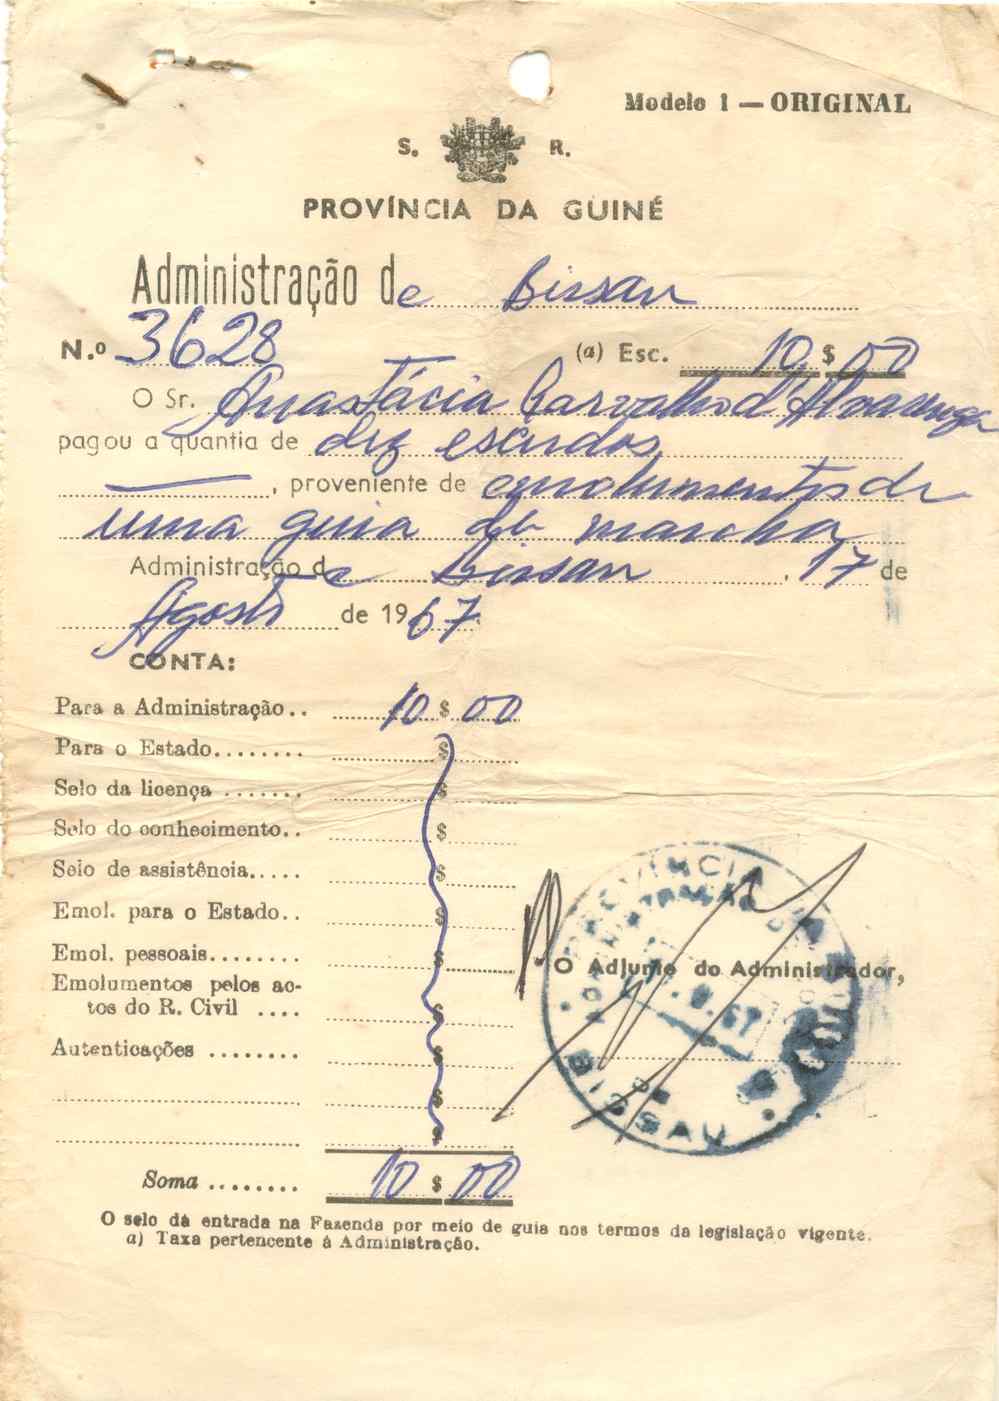 Modelo 1 — ORIGINAL
S. R.
PROVÍNCIA DA GUINÉ
Administração de Bissau
N.º 3628 (a) Esc. 10$00
O Sr. Anastácia Carvalho d'Alvarenga
pagou a quantia de dez escudos
, proveniente de emolumentos de
uma guia de marcha
Administração de Bissau, 17 de
Agosto de 1967
CONTA:
Para a Administração.. 10$00
Para o Estado........ $
Selo da licença ....... $
Selo do conhecimento.. $
Selo de assistência..... $
Emol. para o Estado.. $
Emol. pessoais........ $
O Adjunto do Administrador,
Emolumentos pelos ac-
tos do R. Civil .... $
Autenticações ........ $
$
$
Soma ........ 10$00
PROVÍNCIA DA GUINÉ
ADMINISTRAÇÃO DO
8.67
DE
BISSAU
O selo dá entrada na Fazenda por meio de guia nos termos da legislação vigente.
a) Taxa pertencente à Administração.